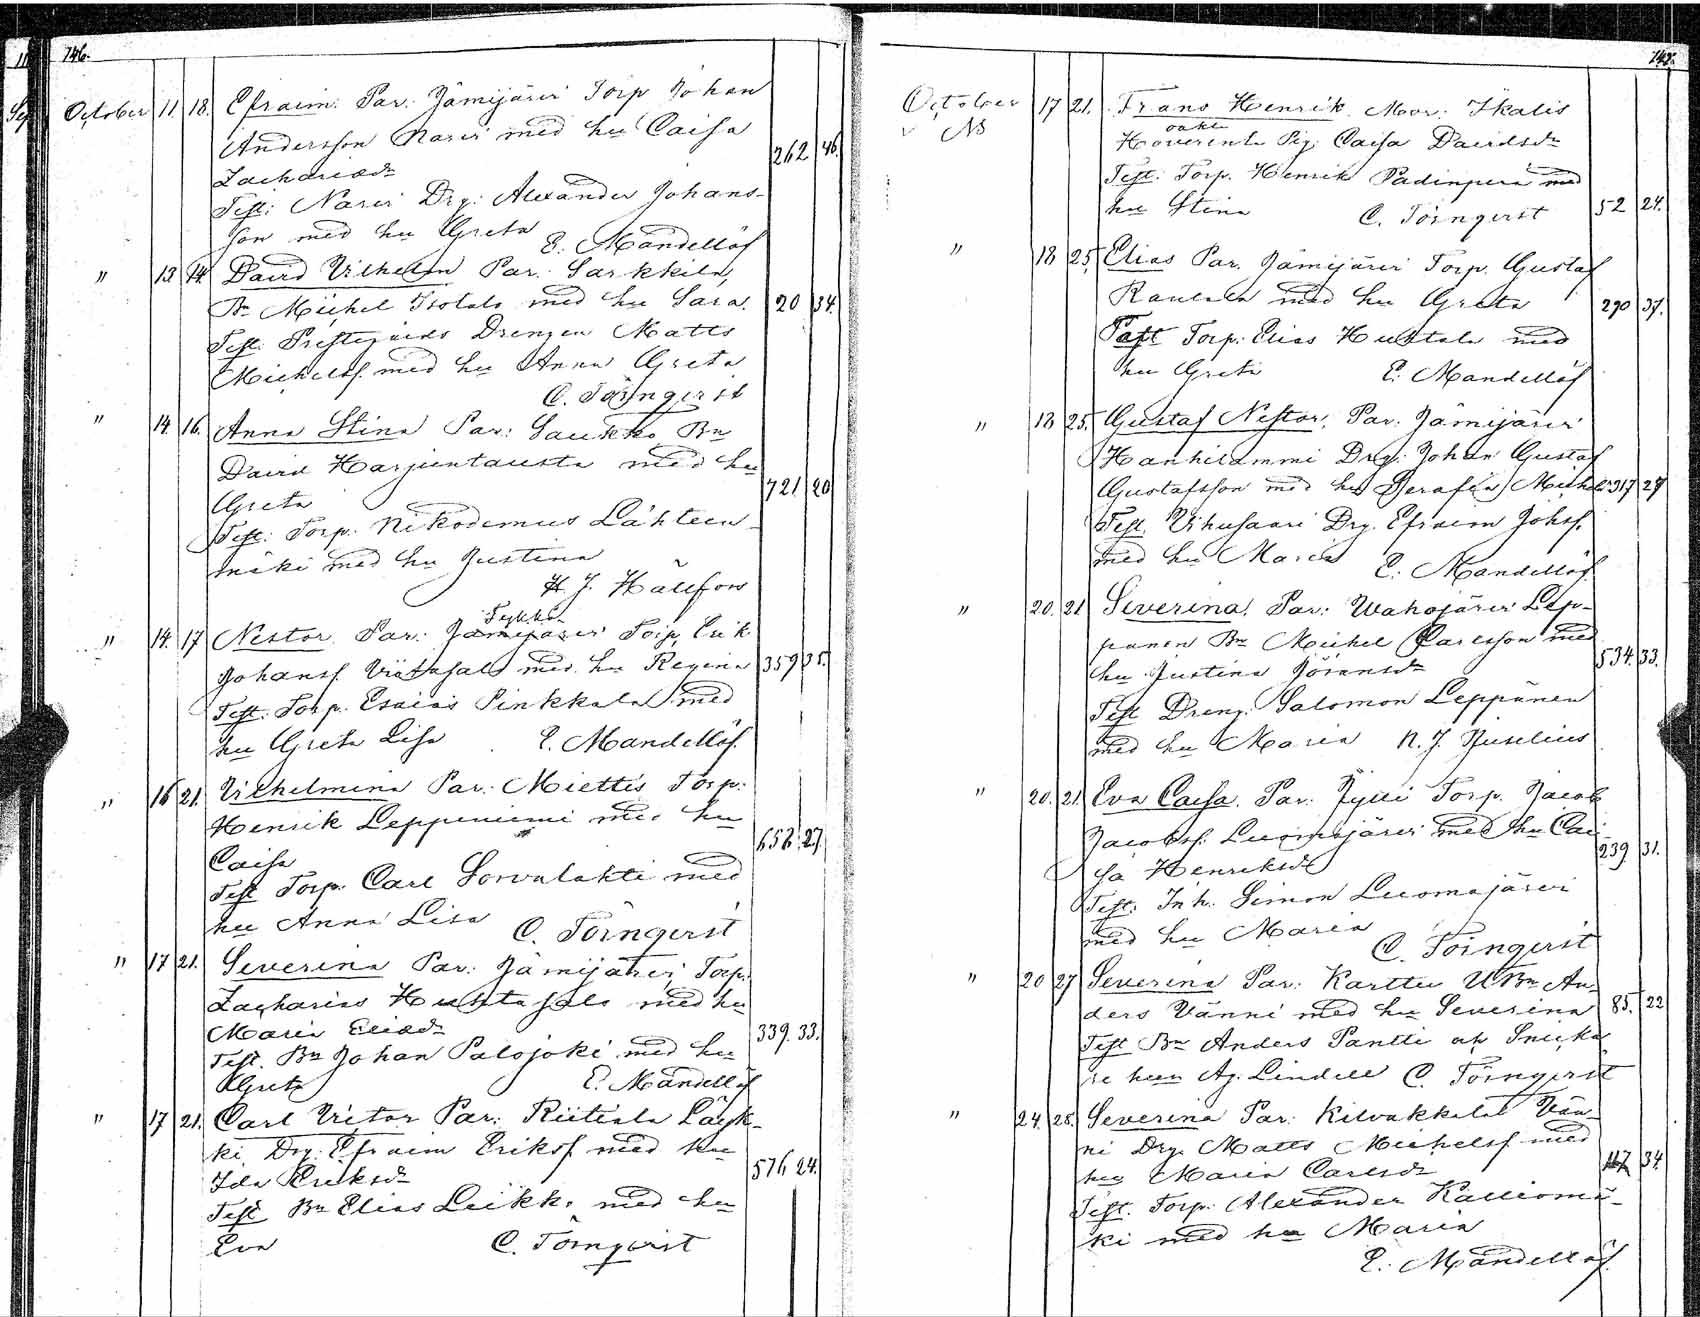 146.
October 11 18. Efraim. Par: Jämijärvi Torp Johan
Andersson Narvi med hu Caisa 262 46.
Zachariædr
Test: Narvi Drg: Alexander Johans-
son med hu Greta
E. Mandellöf
" 13 14. David Vilhelm Par: Sarkkila,
Bn Michel Isotalo med hu Sara. 20 34.
Test. Prestgårds Drengen Matts
Michelss. med hu Anna Greta
C. Törnqvist
" 14. 16. Anna Stina Par: Saukko Bn
David Harjuntausta med hu
Greta 721 20
Test: Torp. Nikodemus Lähteen-
mäki med hu Justina
H J. Hällfors
" 14. 17 Nestor. Par: Jämijärvi Torp. Erik
Johanss. Viitasalo med hu Regina 359 35.
Test: Torp. Esaias Pinkkala med
hu Greta Lisa E. Mandellöf.
" 16 21. Vilhelmina Par: Miettis Torp.
Henrik Leppiniemi med hu
Caisa 656 27.
Test Torp. Carl Sorvalahti med
hu Anna Lisa C. Törnqvist
" 17 21. Severina Par: Jämijärvi Torp.
Zacharias Huhtasalo med hu
Maria Eliædr 339. 33.
Test. Bn Johan Palojoki med hu
Greta E. Mandellöf
" 17 21. Carl Victor Par: Riitiala Läyk-
ki Drg: Efraim Erikss. med hu
Ida Eriksdr 576 24.
Test Bn Elias Leikko med hu
Eva C. Törnqvist
147.
October 17 21. Frans Henrik. Mor: Ikalis
v NB Haverinta Pig: Caisa Davidsdr
Test: Torp. Henrik Padinperä med
hu Stina C. Törnqvist 52 24.
" 18 25. Elias Par. Jämijärvi Torp. Gustaf
Rautala med hu Greta 290 37.
Test Torp: Elias Huhtala med
hu Greta E. Mandellöf
" 18 25. Gustaf Nestor. Par: Jämijärvi
Hanhilammi Drg: Johan Gustaf
Gustafsson med hu Serafia Michels 317 27
Test. Uhusaari Drg. Efraim Johss.
med hu Maria E. Mandellöf.
" 20. 21 Severina. Par: Wahojärvi Lep-
pänen Bn Michel Carlsson med
hu Justina Göransdr 534. 33.
Test Dreng. Salomon Leppänen
med hu Maria N. J. Juselius
" 20. 21. Eva Caisa. Par: Jylli Torp. Jacob
Jacobss. Luomajärvi med hu Cai-
sa Henriksdr 239. 31.
Test: Inh. Simon Luomajärvi
med hu Maria
C. Törnqvist
" 20 27 Severina Par: Karttu UBn An-
ders Vänni med hu Severina 85. 22
Test Bn Anders Pantti och Snicka
re hun Ag. Lindell C. Törnqvist
" 24. 28. Severina Par: Kilvakkala Vän-
ni Drg. Matts Michelss. med
hu Maria Carlsdr 117 34.
Test. Torp. Alexander Kalliomä-
ki med hu Maria
E. Mandellöf.